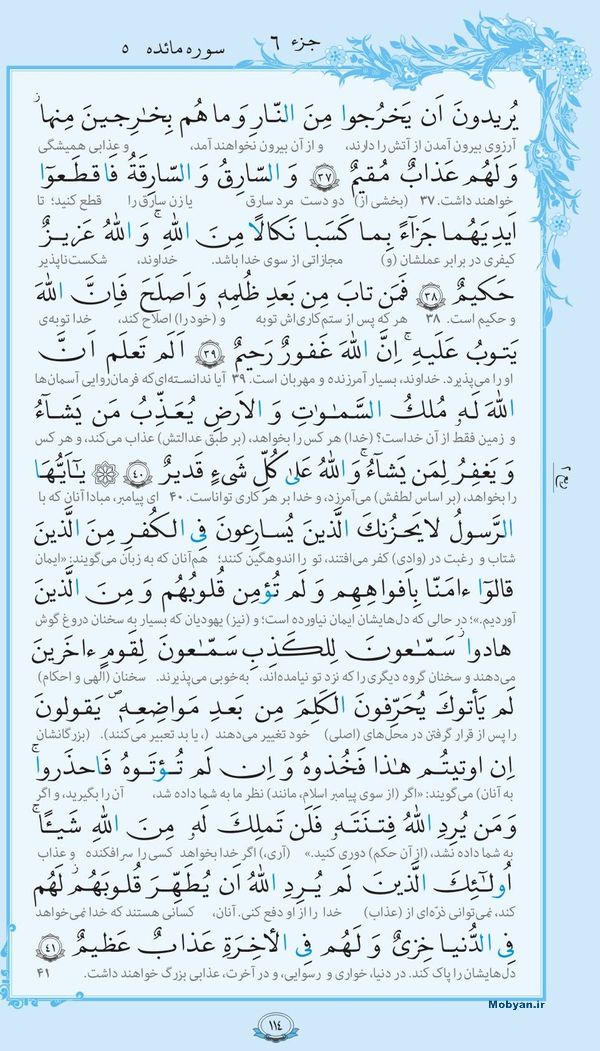 جزء ٦
سوره مائده ٥
يُريدونَ اَن يَخرُجوا مِنَ النّارِ وَ ما هُم بِخارِجينَ مِنها
آرزوی بیرون آمدن از آتش را دارند، و از آن بیرون نخواهند آمد، و عذابی همیشگی
وَ لَهُم عَذابٌ مُقيمٌ ٣٧ وَ السّارِقُ وَ السّارِقَةُ فَاقطَعوٓا
خواهند داشت. ۳۷ (بخشی از) دو دست مرد سارق یا زن سارق را قطع کنید؛ تا
اَيدِيَهُما جَزآءً بِما كَسَبا نَكالًا مِنَ اللّٰهِ ۗ وَ اللّٰهُ عَزيزٌ
کیفری در برابر عملشان (و) مجازاتی از سوی خدا باشد. خداوند، شکست‌ناپذیر
حَكيمٌ ٣٨ فَمَن تابَ مِن بَعدِ ظُلمِهٖ وَ اَصلَحَ فَاِنَّ اللّٰهَ
و حکیم است. ۳۸ هر که پس از ستم‌کاری‌اش توبه و (خود را) اصلاح کند، خدا توبه‌ی
يَتوبُ عَلَيهِ ۗ اِنَّ اللّٰهَ غَفورٌ رَحيمٌ ٣٩ اَلَم تَعلَم اَنَّ
او را می‌پذیرد. خداوند، بسیار آمرزنده و مهربان است. ۳۹ آیا ندانسته‌ای که فرمان‌روایی آسمان‌ها
اللّٰهَ لَهٗ مُلكُ السَّمٰوٰتِ وَ الاَرضِ يُعَذِّبُ مَن يَشآءُ
و زمین فقط از آن خداست؟ (خدا) هر کس را بخواهد، (بر طبق عدالتش) عذاب می‌کند، و هر کس
وَ يَغفِرُ لِمَن يَشآءُ ۗ وَ اللّٰهُ عَلىٰ كُلِّ شَیءٍ قَديرٌ ٤٠ يٰٓاَيُّهَا
را بخواهد، (بر اساس لطفش) می‌آمرزد، و خدا بر هر کاری تواناست. ۴۰ ای پیامبر، مبادا آنان که با
الرَّسولُ لا يَحزُنكَ الَّذينَ يُسارِعونَ فِی الكُفرِ مِنَ الَّذينَ
شتاب و رغبت در (وادی) کفر می‌افتند، تو را اندوهگین کنند؛ هم‌آنان که به زبان می‌گویند: «ایمان
قالوٓا ءامَنّا بِاَفواهِهِم وَ لَم تُؤمِن قُلوبُهُم وَ مِنَ الَّذينَ
آوردیم.»؛ در حالی که دل‌هایشان ایمان نیاورده است؛ و (نیز) یهودیان که بسیار به سخنان دروغ گوش
هادوا سَمّٰعونَ لِلكَذِبِ سَمّٰعونَ لِقَومٍ ءاخَرينَ
می‌دهند و سخنان گروه دیگری را که نزد تو نیامده‌اند، به‌خوبی می‌پذیرند. سخنان (الهی و احکام)
لَم يَأتوكَ يُحَرِّفونَ الكَلِمَ مِن بَعدِ مَواضِعِهٖ ۖ يَقولونَ
را پس از قرار گرفتن در محل‌های (اصلی) خود تغییر می‌دهند (، یا بد تعبیر می‌کنند). (بزرگانشان
اِن اوتيتُم هٰذا فَخُذوهُ وَ اِن لَم تُؤتَوهُ فَاحذَروا
به آنان) می‌گویند: «اگر (از سوی پیامبر اسلام، مانند) نظر ما به شما داده شد، آن را بگیرید، و اگر
وَ مَن يُرِدِ اللّٰهُ فِتنَتَهٗ فَلَن تَملِكَ لَهٗ مِنَ اللّٰهِ شَيـًٔا
به شما داده نشد، (از آن حکم) دوری کنید.» (آری،) اگر خدا بخواهد کسی را سرافکنده و عذاب
اُولٰٓئِكَ الَّذينَ لَم يُرِدِ اللّٰهُ اَن يُطَهِّرَ قُلوبَهُم لَهُم
کند، نمی‌توانی ذرّه‌ای از (عذاب) خدا را از او دفع کنی. آنان، کسانی هستند که خدا نمی‌خواهد
فِی الدُّنيا خِزیٌ وَ لَهُم فِی الاٰخِرَةِ عَذابٌ عَظيمٌ ٤١
دل‌هایشان را پاک کند. در دنیا، خواری و رسوایی، و در آخرت، عذابی بزرگ خواهند داشت. ۴۱
Mobyan.ir
١١٤